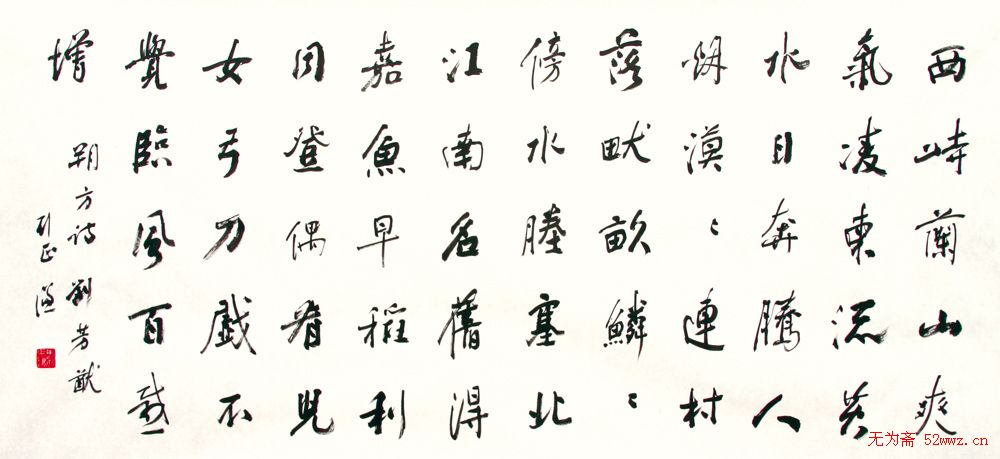 西峙蘭山爽
氣凌東流黃
水日奔騰人
烟漠〻連村
落畎畝鱗〻
傍水塍塞北
江南名舊得
嘉魚早稻利
同登偶看兒
女弓刀戲不
覺臨風百感
增
朔方詩 劉芳猷
无为斋 52wwz.cn